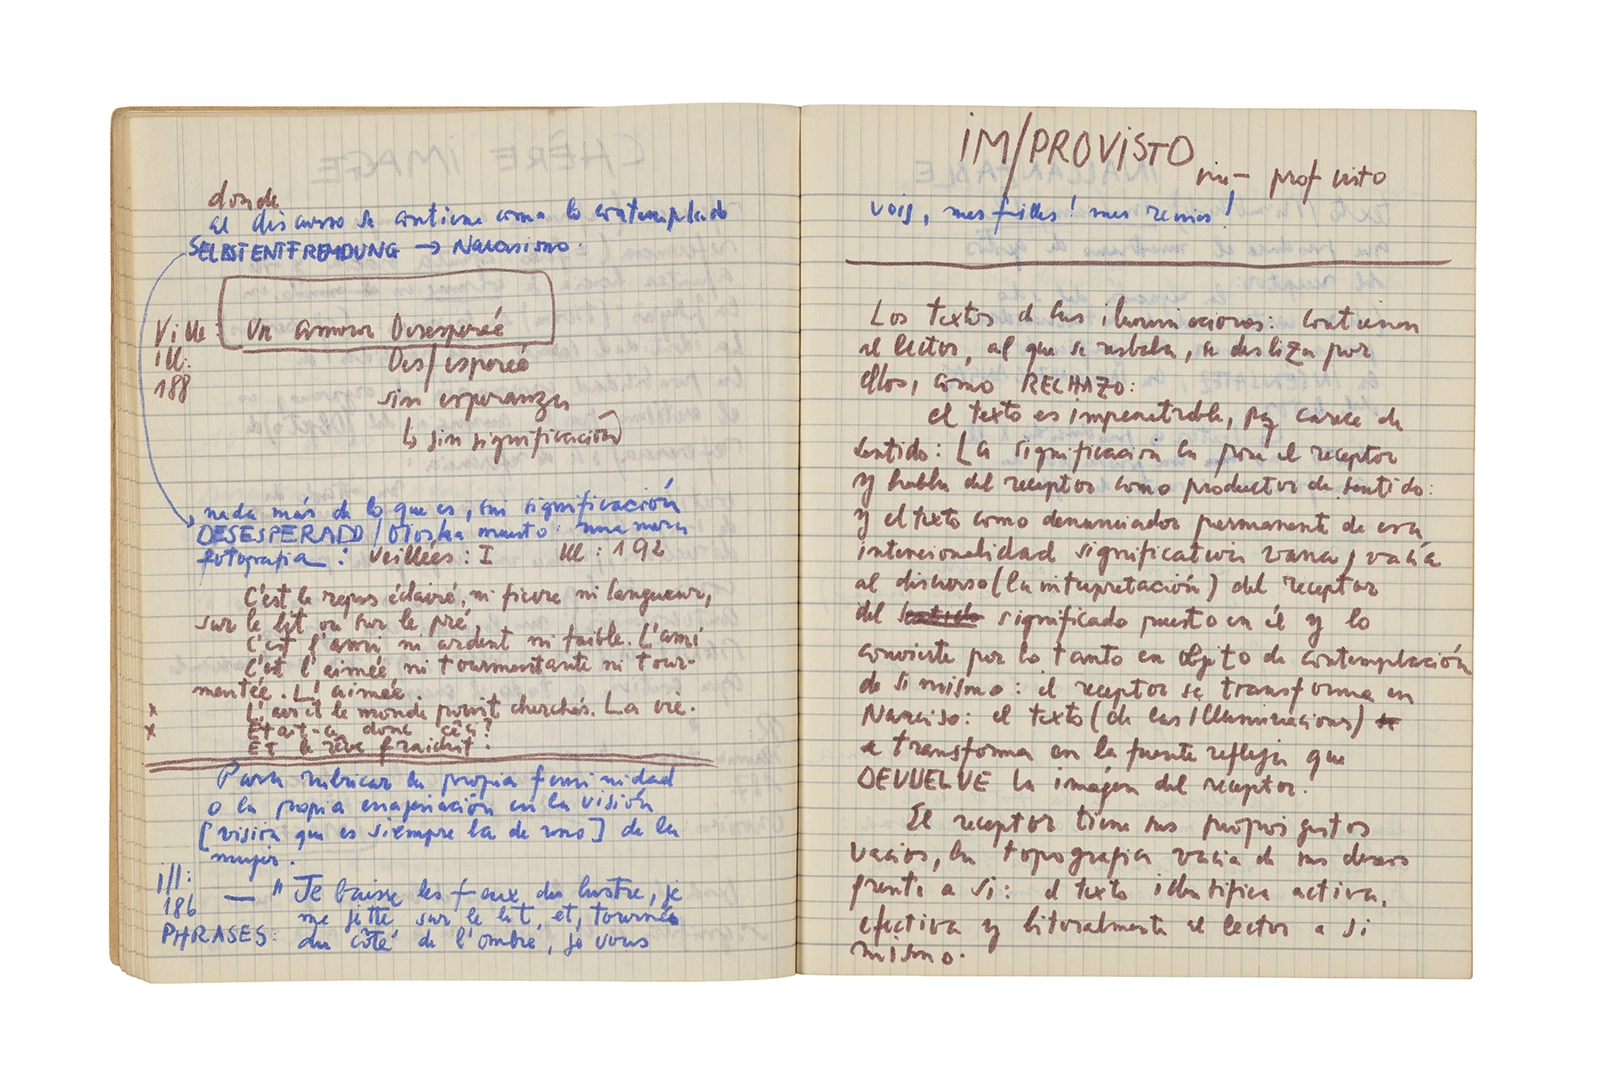 donde
el discurso se contiene como lo contemplado
SELBSTENTFREMDUNG → Narcisismo.
Ville: Un amour Desesperéé
Ill: Des/esperéé
188 sin esperanza
lo sin significación
nada más de lo que es, sin significación
DESESPERADO / muerto: una mera
fotografia: Veillées: I Ill: 192
C'est le repos éclairé, ni fièvre ni langueur,
sur le lit ou sur le pré.
C'est l'ami ni ardent ni faible. L'ami
C'est l'aimée ni tourmentante ni tour-
mentée. L'aimée.
x L'air et le monde point cherchés. La vie.
x Etait-ce donc ceci?
Et le rêve fraichit.
Para rubricar la propia feminidad
o la propia enajenación en la visión
[visión que es siempre la de uno] de la
mujer.
ill:
186 — "Je baisse les feux du lustre, je
me jette sur le lit, et, tourné
PHRASES: du côté de l'ombre, je vous
IM/PROVISTO
im- prof visto
vois, mes filles! mes reines!
Los textos de las iluminaciones: contienen
al lector, al que se resbala, se desliza por
ellos, como RECHAZO:
el texto es impenetrable, pq carece de
sentido: La significación la pone el receptor
y habla del receptor como productor de sentido:
y el texto como denunciador permanente de esa
intencionalidad significativa vana, vacía
al discurso (la interpretación) del receptor
del sentido significado puesto en él y lo
convierte por lo tanto en objeto de contemplación
de si mismo: el receptor se transforma en
Narciso: el texto (de las Illuminacions)
se transforma en la fuente refleja que
DEVUELVE la imágen del receptor.
El receptor tiene sus propios gestos
vacios, la topografia vacia de sus deseos
frente a si: el texto identifica activa,
efectiva y literalmente al lector a si
mismo.